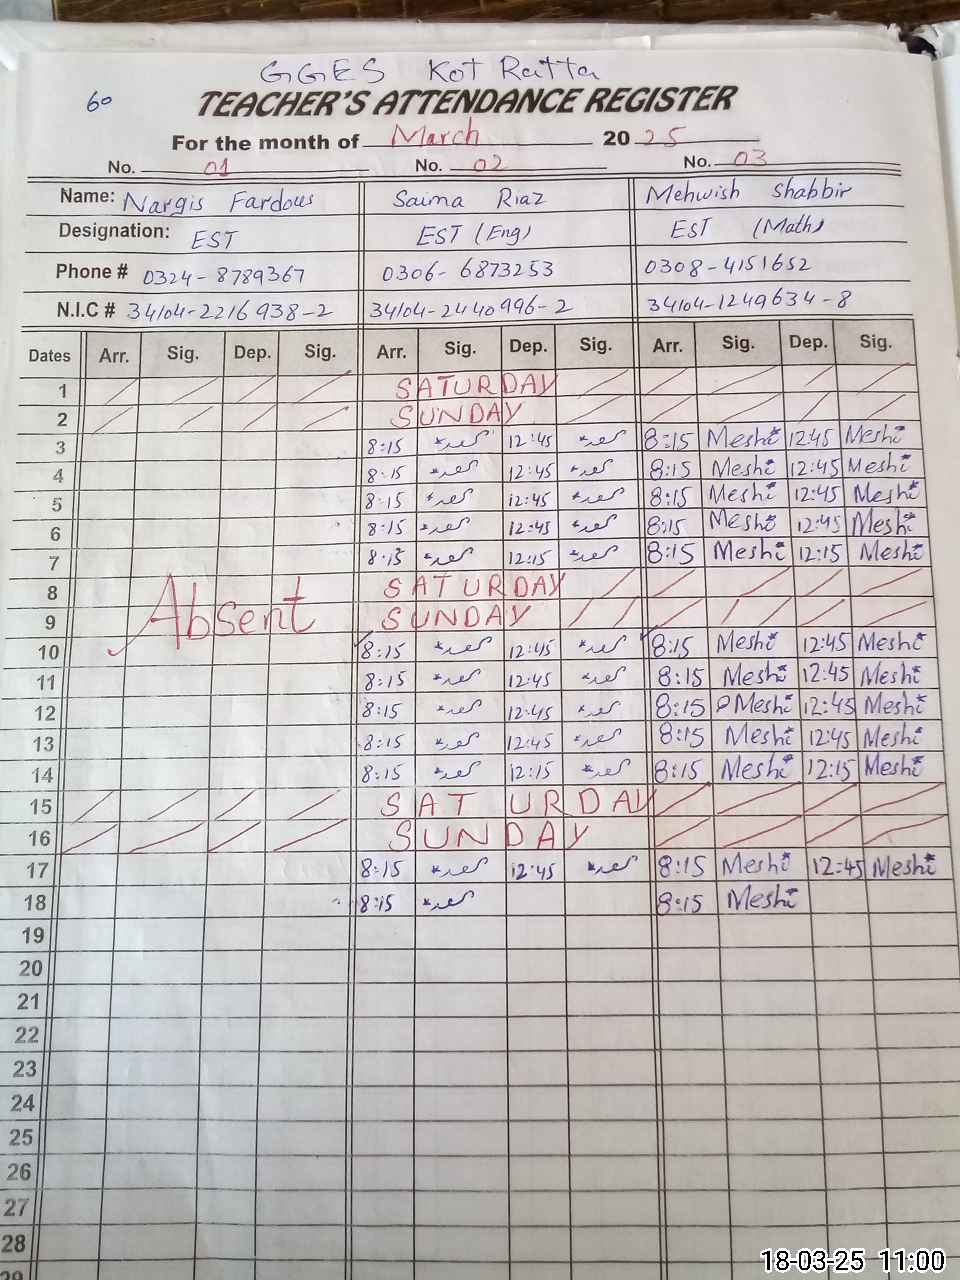 GGES Kot Ratta
60
TEACHER'S ATTENDANCE REGISTER
For the month of March 2025
No. 01 No. 02 No. 03
Name: Nargis Fardous Saima Riaz Mehwish Shabbir
Designation: EST EST (Eng) EST (Math)
Phone # 0324-8789367 0306-6873253 0308-4151652
N.I.C # 34104-2216938-2 34104-2440996-2 34104-1249634-8
Dates Arr. Sig. Dep. Sig. Arr. Sig. Dep. Sig. Arr. Sig. Dep. Sig.
1 SATURDAY
2 SUNDAY
3 8:15 12:45 8:15 Meshi 12:45 Meshi
4 8:15 12:45 8:15 Meshi 12:45 Meshi
5 8:15 12:45 8:15 Meshi 12:45 Meshi
6 8:15 12:45 8:15 Meshi 12:45 Meshi
7 8:15 12:15 8:15 Meshi 12:15 Meshi
8 SATURDAY
9 Absent SUNDAY
10 8:15 12:45 8:15 Meshi 12:45 Meshi
11 8:15 12:45 8:15 Meshi 12:45 Meshi
12 8:15 12:45 8:15 Meshi 12:45 Meshi
13 8:15 12:45 8:15 Meshi 12:45 Meshi
14 8:15 12:15 8:15 Meshi 12:15 Meshi
15 SATURDAY
16 SUNDAY
17 8:15 12:45 8:15 Meshi 12:45 Meshi
18 8:15 8:15 Meshi
19
20
21
22
23
24
25
26
27
28
29
18-03-25 11:00